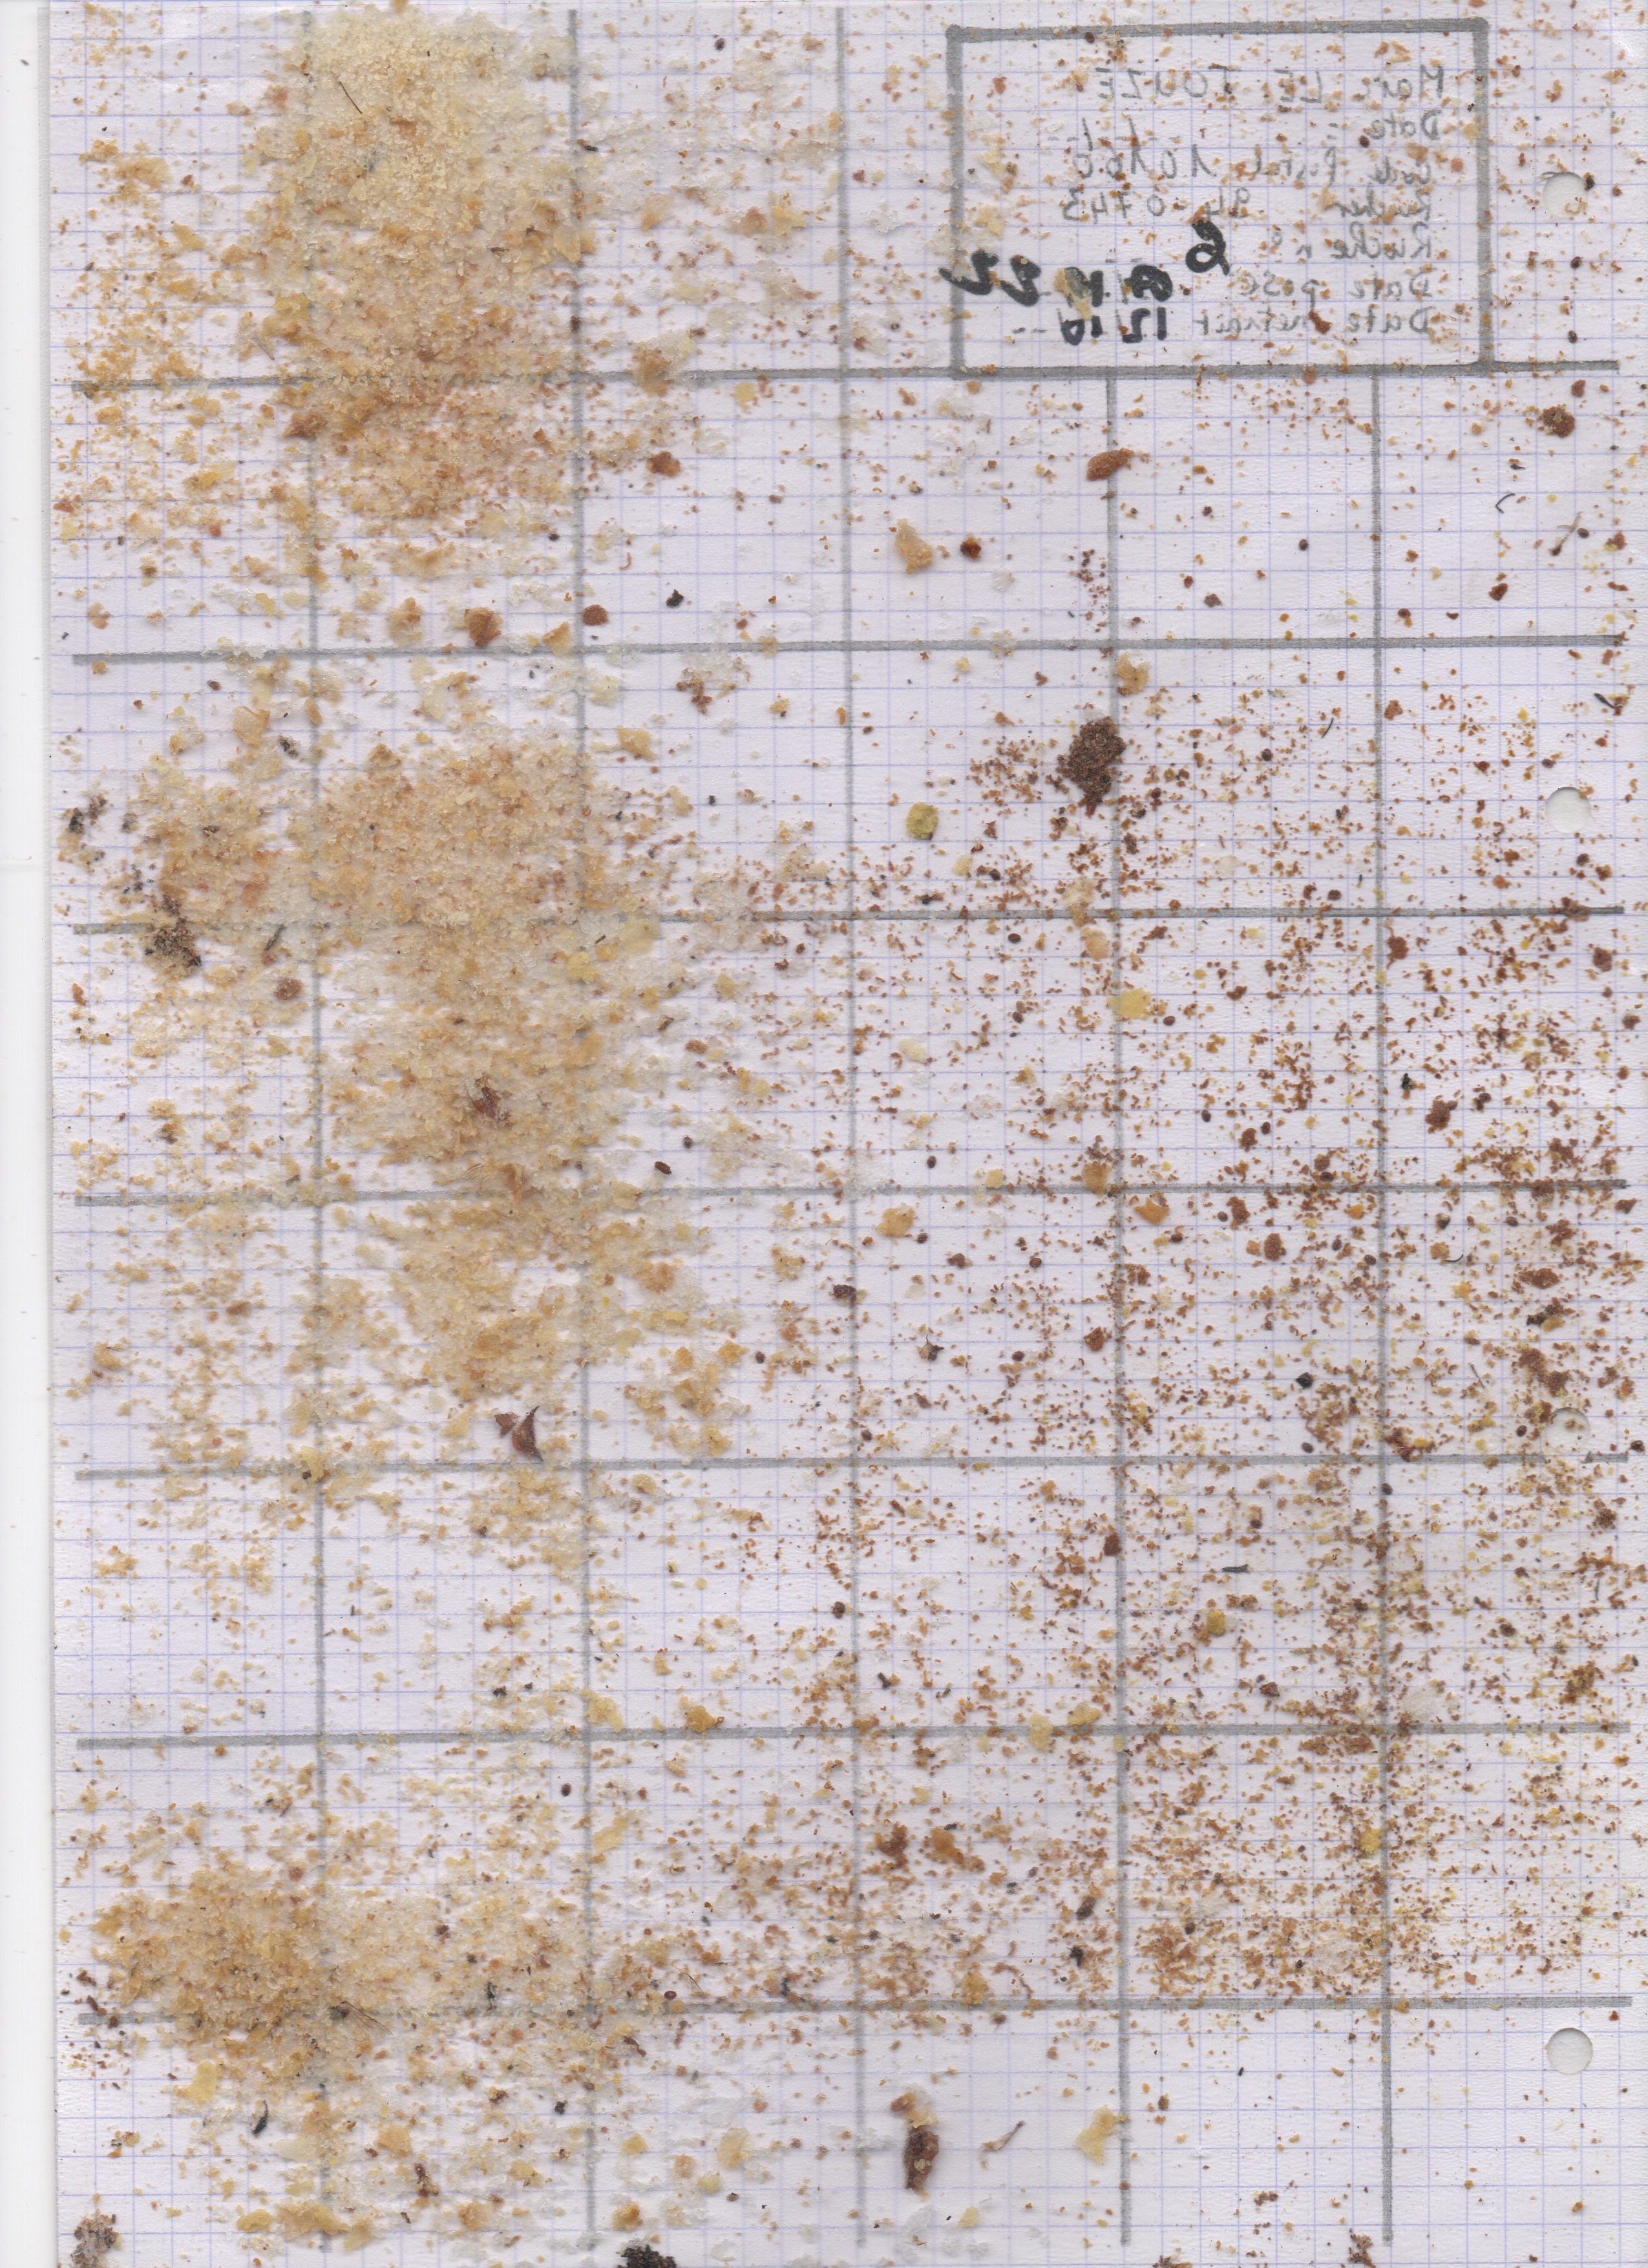 Marc LE TOUZE
Date
Code Postal 10160
Rucher 94-0743
Ruche n° 6
Date pose
Date retrait 12/10